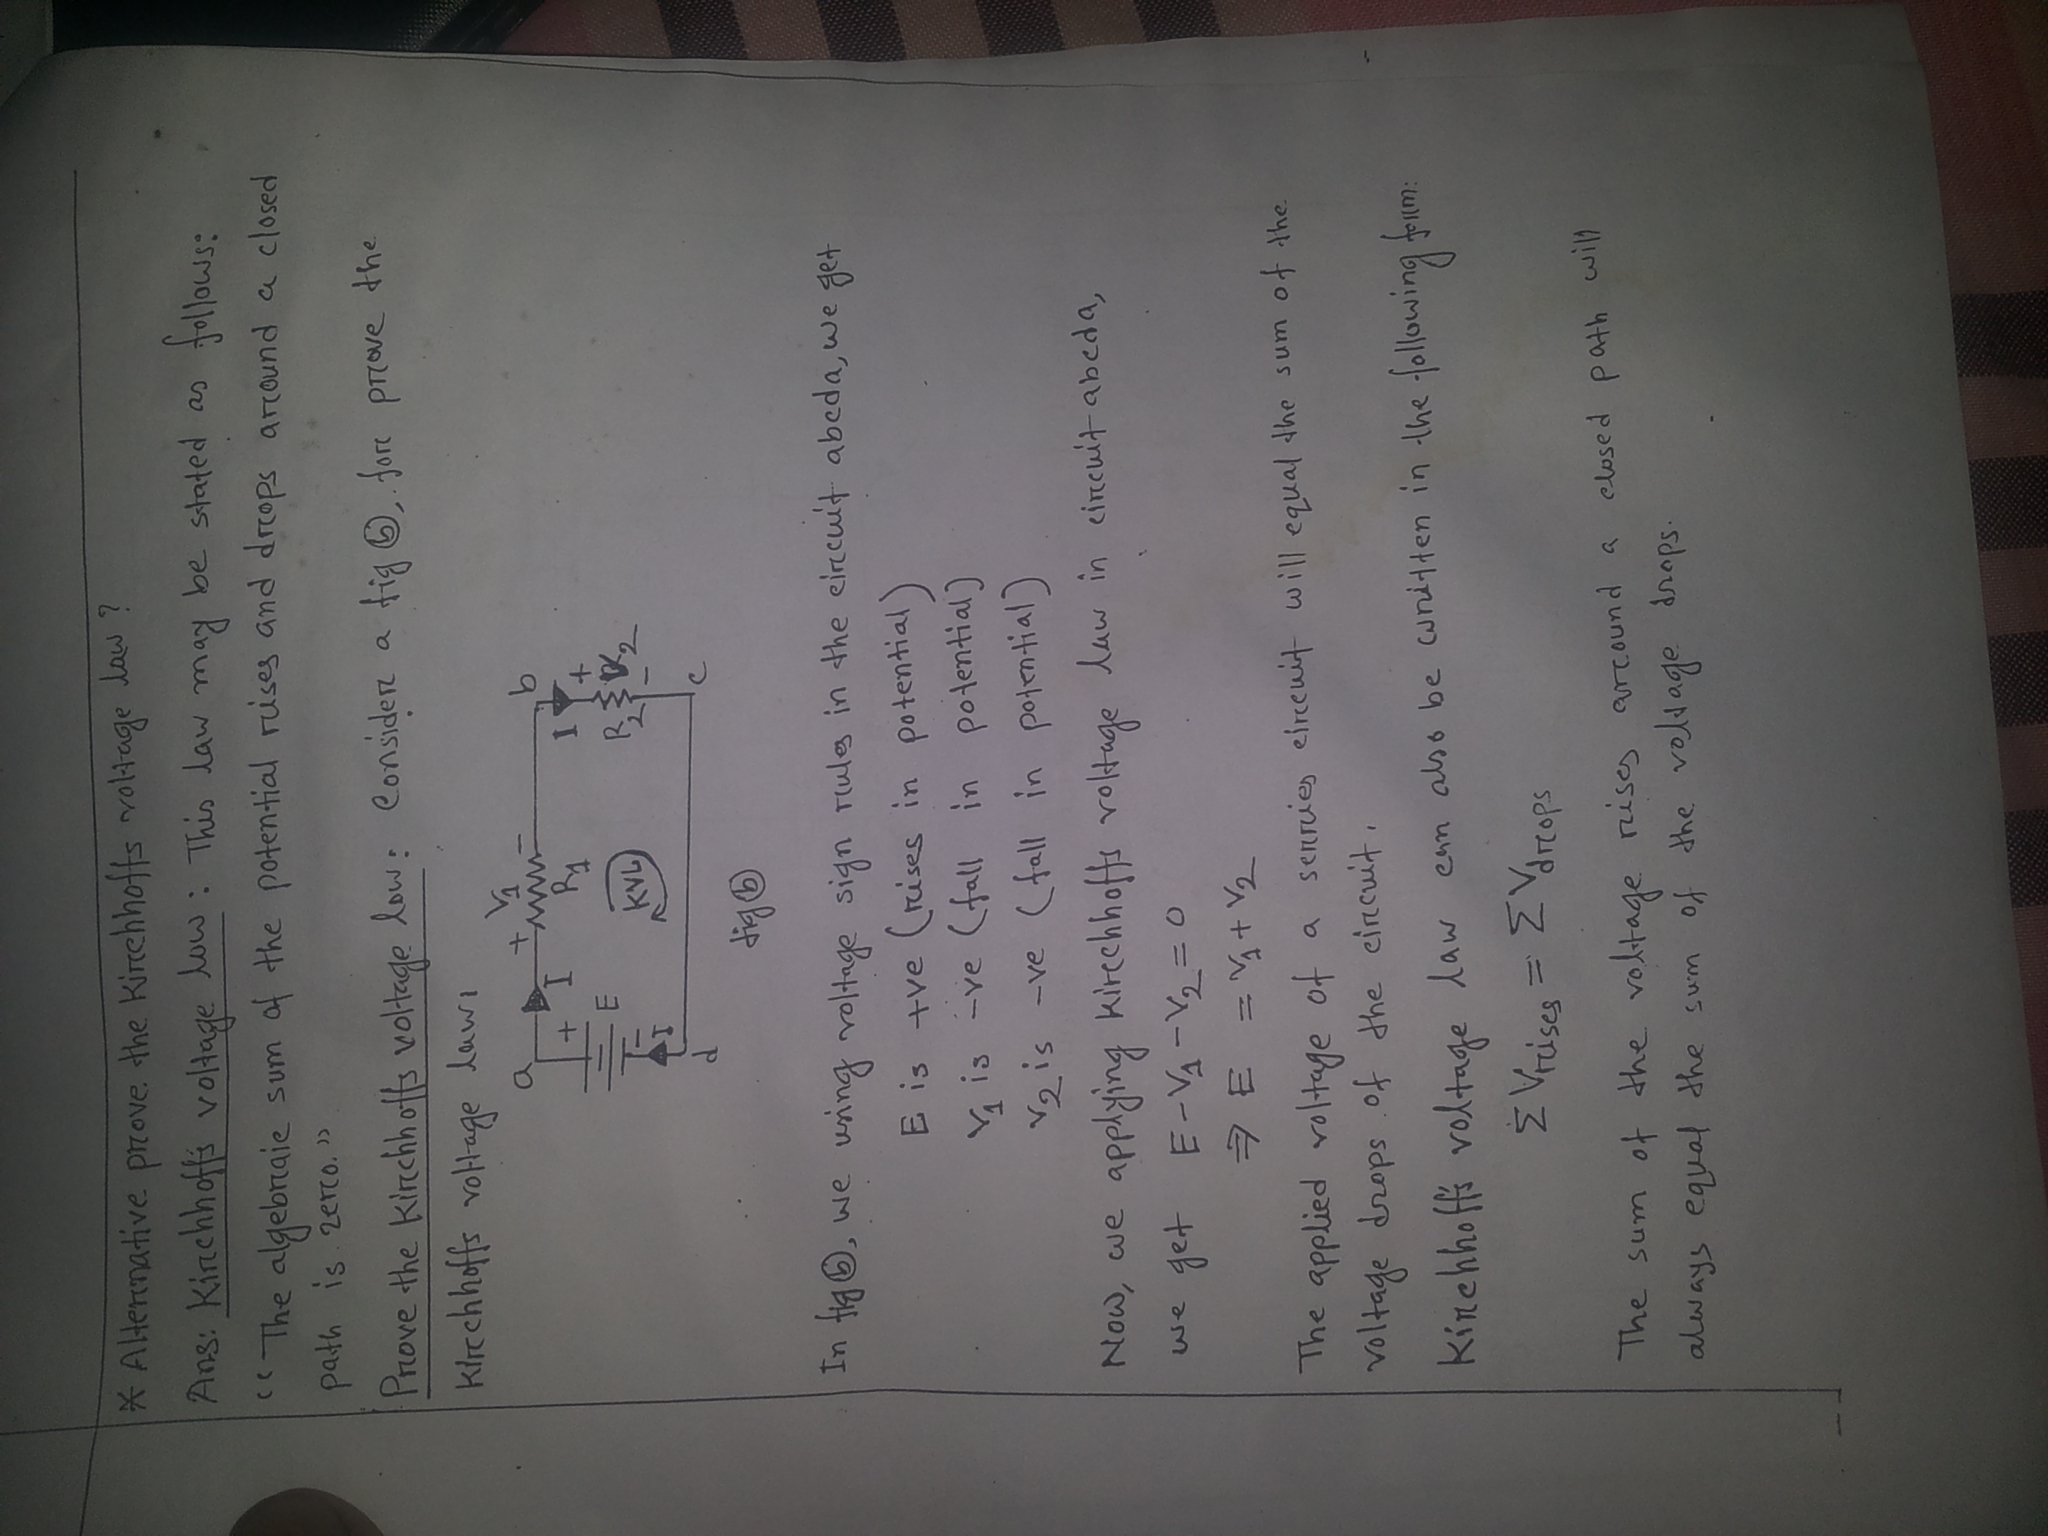 * Alternative prove the Kirchhoffs voltage law?
Ans: Kirchhoff's voltage low: This law may be stated as follows:
“The algebraic sum of the potential rises and drops around a closed
path is zero.”
Prove the Kirchhoffs voltage low: Consider a fig ⓑ, for prove the
Kirchhoffs voltage law.
V₁
a + - b
+ I R₁ I +
E KVL R₂ V₂
- I -
d c
fig ⓑ
In fig ⓑ, we using voltage sign rules in the circuit abcda, we get
E is +ve (rises in potential)
V₁ is -ve (fall in potential)
V₂ is -ve (fall in potential)
Now, we applying Kirchhoffs voltage law in circuit abcda,
we get E-V₁-V₂=0
⇒ E = V₁+V₂
The applied voltage of a serries circuit will equal the sum of the
voltage drops of the circuit.
Kirchhoff's voltage law can also be written in the following form:
Σ Vrises = Σ Vdrops
The sum of the voltage rises around a closed path will
always equal the sum of the voltage drops.